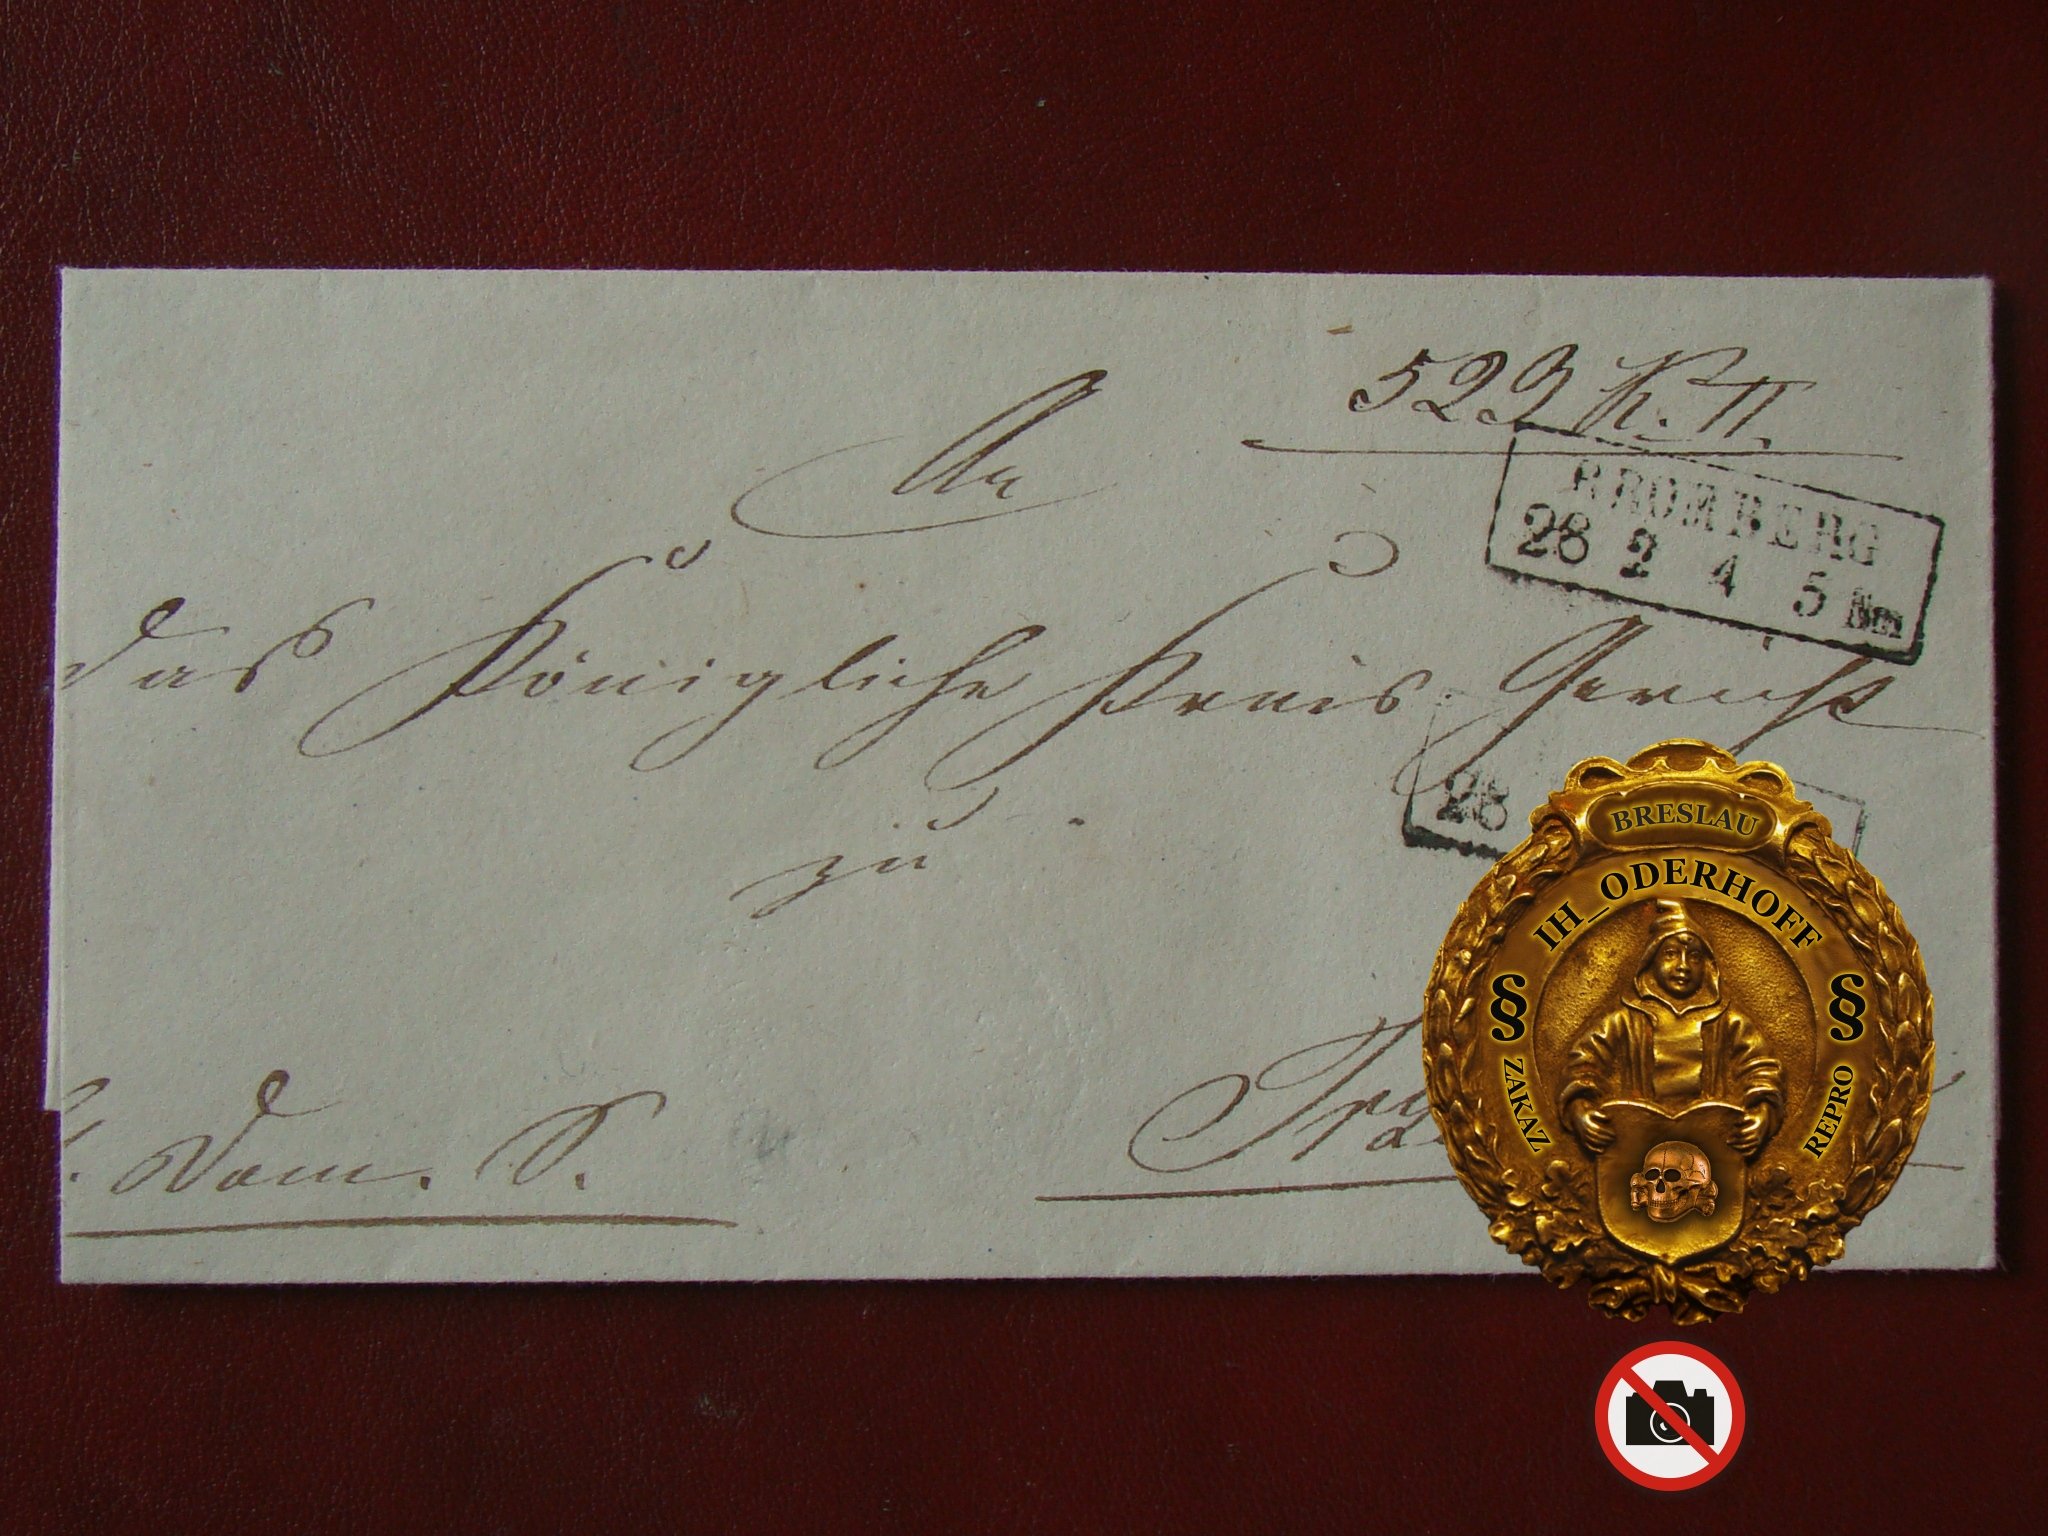 523 K. II.
An
BROMBERG
28 2 4 5 Nm
das Königliche Kreis-Gericht
28
zu
Dom. S.
BRESLAU
IH_ODERHOFF
§ §
ZAKAZ REPRO